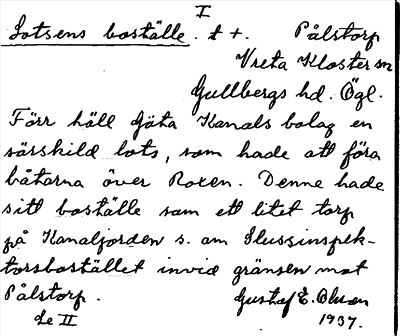 I
Lotsens boställe. t +. Pålstorp
Vreta Kloster sn
Gullbergs hd. Ögl.
Förr höll Göta Kanals bolag en
särskild lots, som hade att föra
båtarna över Roxen. Denne hade
sitt boställe som ett litet torp
på Kanaljorden s. om Slussinspek-
torsbostället invid gränsen mot
Pålstorp. Gustaf E. Olsson
de II 1937.